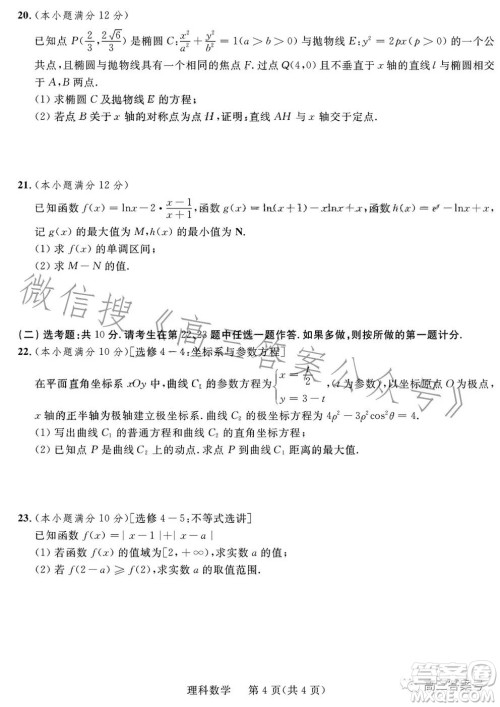 20.(本小题满分12分)
已知点 P(2/3, 2√6/3)是椭圆 C: x²/a²+y²/b²=1(a>b>0)与抛物线 E: y²=2px(p>0)的一个公
共点,且椭圆与抛物线具有一个相同的焦点 F. 过点 Q(4,0)且不垂直于 x 轴的直线 l 与椭圆相交
于 A,B 两点.
(1)求椭圆 C 及抛物线 E 的方程;
(2)若点 B 关于 x 轴的对称点为点 H,证明:直线 AH 与 x 轴交于定点.
21.(本小题满分12分)
已知函数 f(x)=lnx-2·(x-1)/(x+1),函数 g(x)=ln(x+1)-xln(x+1)-x,函数 h(x)=
记 g(x)的最大值为 M,h(x)的最小值为 N.
(1)求 f(x)的单调区间;
(2)求 M-N 的值.
(二)选考题:共10分.请考生在第22,23题中任选一题作答.如果多做,则按所做的第一题计分.
22.(本小题满分10分)[选修4-4:坐标系与参数方程]
在平面直角坐标系 xOy 中,曲线 C₁ 的参数方程为 (t 为参数),以坐标原点 O 为极点,
x 轴的正半轴为极轴建立极坐标系,曲线 C₂ 的极坐标方程为 4ρ²-3ρ²cos²θ=4.
(1)写出曲线 C₁ 的普通方程和 C₂ 的直角坐标方程;
(2)已知点 P 是曲线 C₂ 上的动点,求点 P 到曲线 C₁ 距离的最大值.
23.(本小题满分10分)[选修4-5:不等式选讲]
已知函数 f(x)=|x-1|+|x-a|.
(1)若函数 f(x)的值域为[2,+∞),求实数 a 的值;
(2)若 f(2-a)≥f(2),求实数 a 的取值范围.
理科数学 第4页(共4页)
微信搜《高三答案公众号》
高三答案号